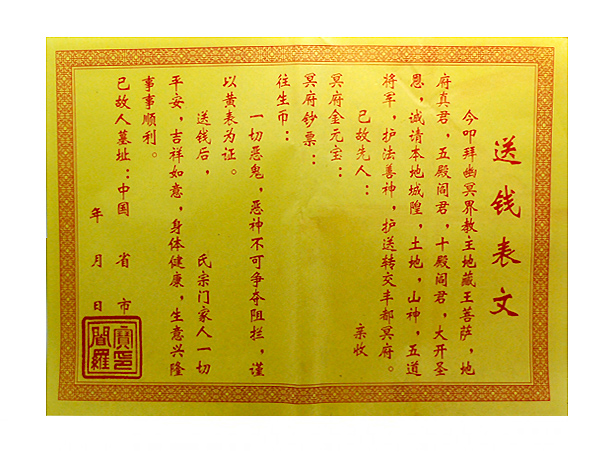 送钱表文
今叩拜幽冥界教主地藏王菩萨，地
府真君，五殿阎君，十殿阎君，大开圣
恩，诚请本地城隍，土地，山神，五道
将军，护法善神，护送转交丰都冥府。
已故先人： 亲收
冥府金元宝：
冥府钞票：
往生币：
一切恶鬼，恶神不可争夺阻拦，谨
以黄表为证。
送钱后， 氏宗门家人一切
平安，吉祥如意，身体健康，生意兴隆
事事顺利。
已故人墓址：中国 省 市
年 月 日
寶印
閻羅